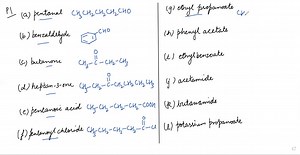 P1 (a) pentanal CH₃CH₂CH₂CH₂CHO
(b) benzaldehyde CHO
(c) butanone CH₃-C-CH₂-CH₃
O
(d) heptan-3-one CH₃CH₂-C-CH₂CH₂CH₂CH₃
O
(e) pentanoic acid CH₃-CH₂-CH₂-CH₂-COOH
(f) butanoyl chloride CH₃-CH₂-CH₂-C-Cl
O
(g) ethyl propanoate
(h) phenyl acetate
(i) ethylbenzoate
(j) acetamide
(k) butanamide
(l) potassium propanoate